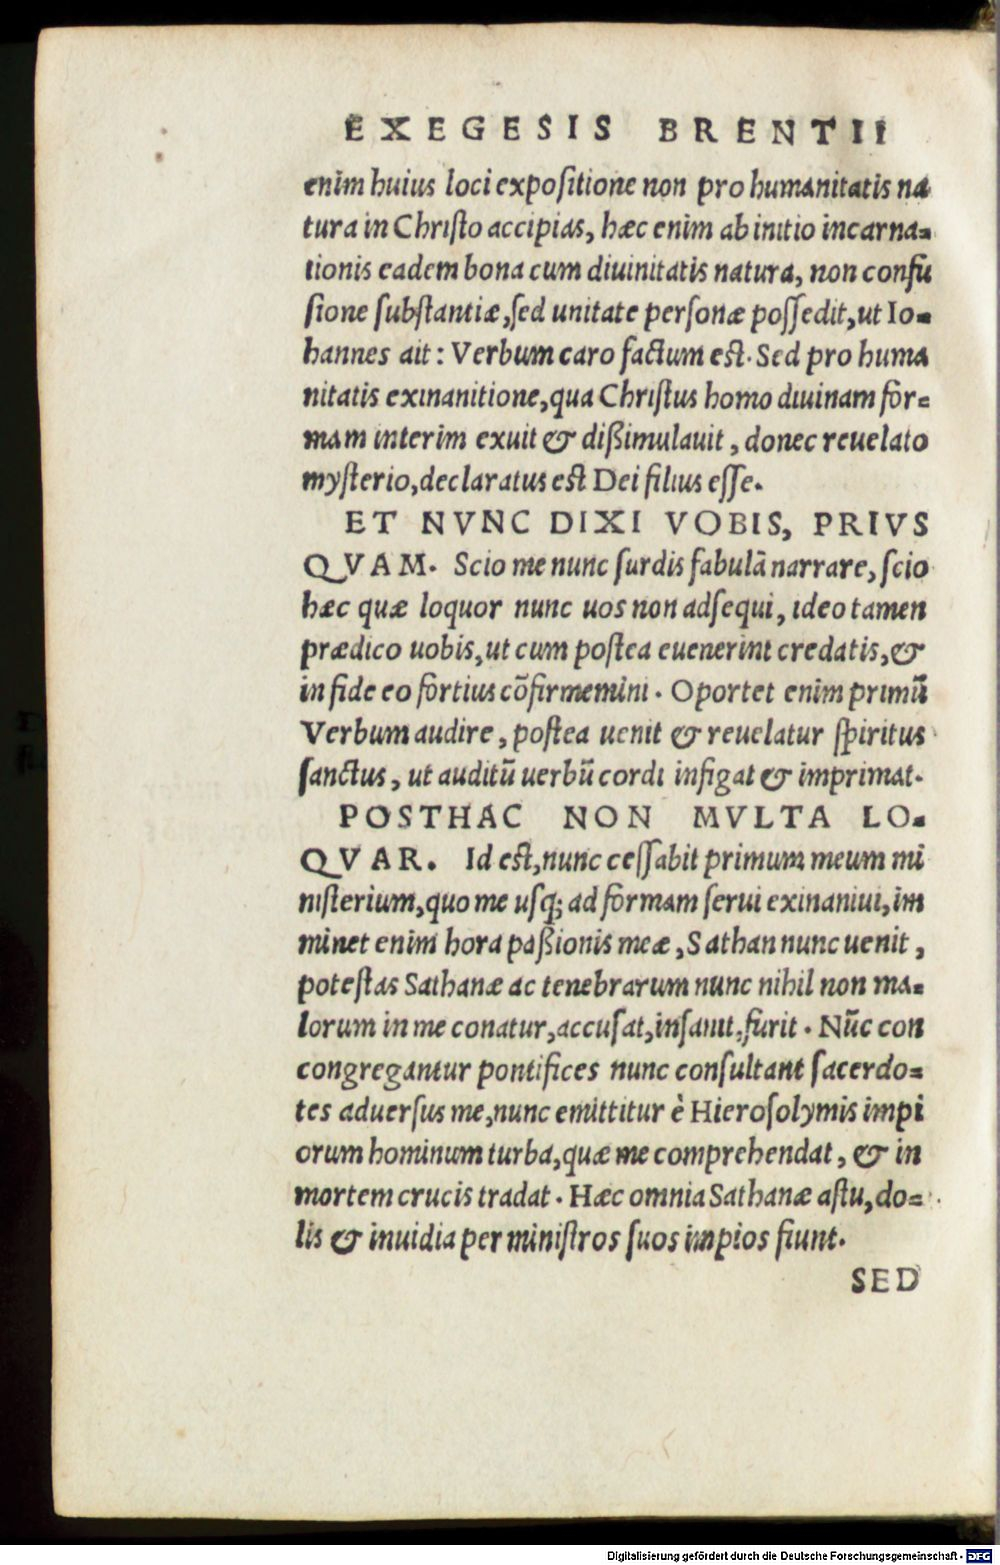 EXEGESIS BRENTII
enim huius loci expoſitione non pro humanitatis na
tura in Chriſto accipias, hæc enim ab initio incarna=
tionis eadem bona cum diuinitatis natura, non confu
ſione ſubſtantiæ, ſed unitate perſonæ poſſedit, ut Io=
hannes ait: Verbum caro factum eſt. Sed pro huma
nitatis exinanitione, qua Chriſtus homo diuinam for=
mam interim exuit & dißimulauit, donec reuelato
myſterio, declaratus eſt Dei filius eſſe.
ET NVNC DIXI VOBIS, PRIVS
QVAM. Scio me nunc ſurdis fabulā narrare, ſcio
hæc quæ loquor nunc uos non adſequi, ideo tamen
prædico uobis, ut cum poſtea euenerint credatis, &
in fide eo fortius cōfirmemini. Oportet enim primū
Verbum audire, poſtea uenit & reuelatur ſpiritus
ſanctus, ut auditū uerbū cordi infigat & imprimat.
POSTHAC NON MVLTA LO=
QVAR. Id eſt, nunc ceſſabit primum meum mi
niſterium, quo me uſq; ad formam ſerui exinaniui, im
minet enim hora paßionis meæ, Sathan nunc uenit,
poteſtas Sathanæ ac tenebrarum nunc nihil non ma=
lorum in me conatur, accuſat, inſanit, furit. Nūc con
congregantur pontifices nunc conſultant ſacerdo=
tes aduerſus me, nunc emittitur è Hieroſolymis impi
orum hominum turba, quæ me comprehendat, & in
mortem crucis tradat. Hæc omnia Sathanæ aſtu, do=
lis & inuidia per miniſtros ſuos impios fiunt.
SED
Digitalisierung gefördert durch die Deutsche Forschungsgemeinschaft - DFG